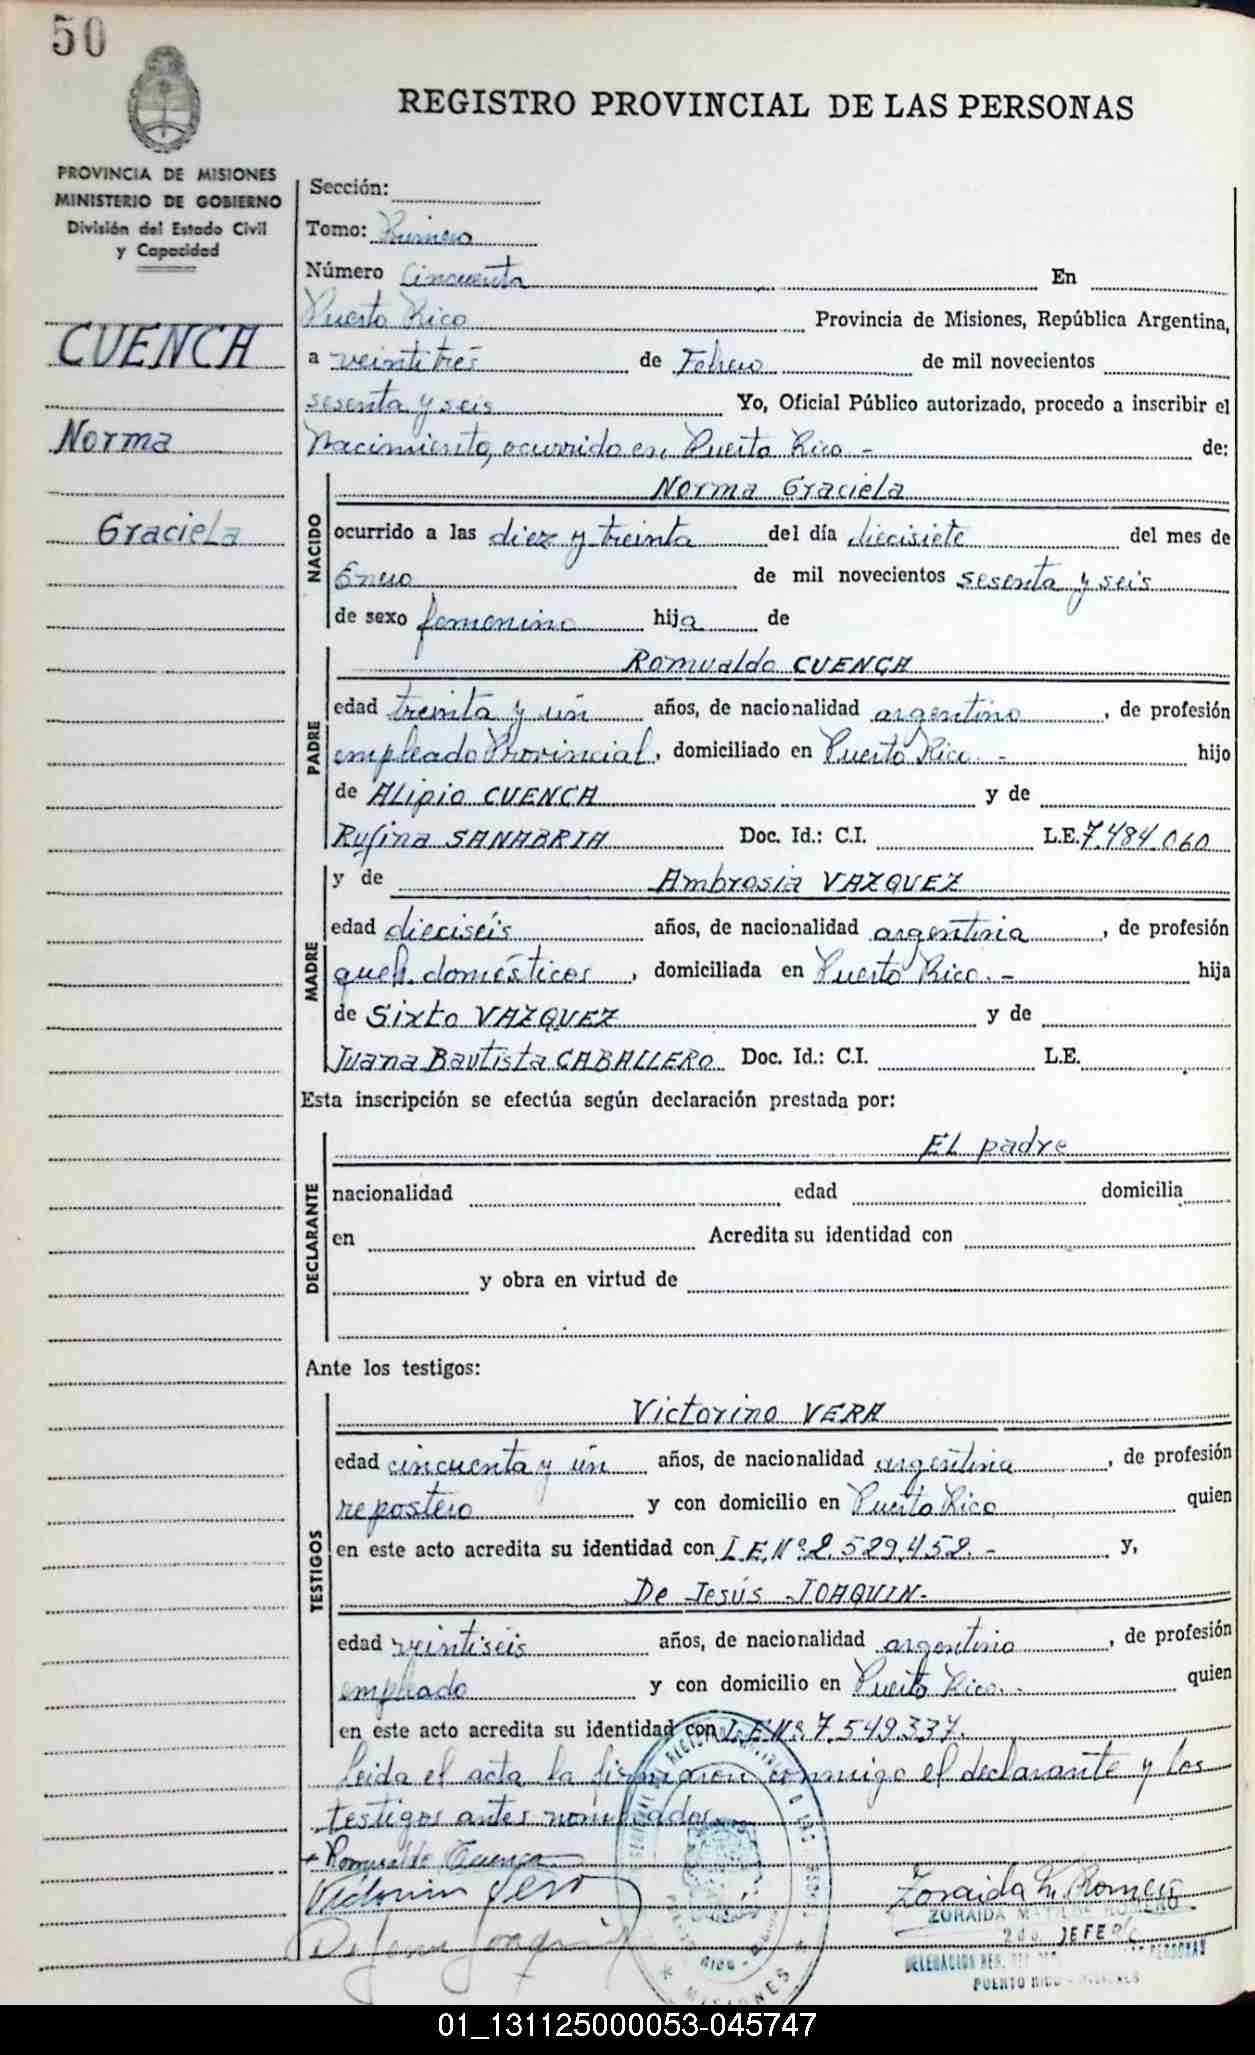 50
REGISTRO PROVINCIAL DE LAS PERSONAS
PROVINCIA DE MISIONES
MINISTERIO DE GOBIERNO
División del Estado Civil
y Capacidad
CUENCA
Norma
Graciela
Sección:
Tomo: Primero
Número Cincuenta En
Puerto Rico Provincia de Misiones, República Argentina,
a veintitrés de Febrero de mil novecientos
sesenta y seis Yo, Oficial Público autorizado, procedo a inscribir el
Nacimiento, ocurrido en Puerto Rico - de:
NACIDO
Norma Graciela
ocurrido a las diez y treinta del día diecisiete del mes de
Enero de mil novecientos sesenta y seis
de sexo femenino hija de
PADRE
Romualdo CUENCA
edad treinta y ún años, de nacionalidad argentino, de profesión
empleado Provincial, domiciliado en Puerto Rico - hijo
de Alipio CUENCA y de
Rufina SANABRIA Doc. Id.: C.I. L.E. 7.484.060
MADRE
y de Ambrosia VAZQUEZ
edad dieciséis años, de nacionalidad argentina, de profesión
queh. domésticos, domiciliada en Puerto Rico. - hija
de Sixto VAZQUEZ y de
Juana Bautista CABALLERO Doc. Id.: C.I. L.E.
Esta inscripción se efectúa según declaración prestada por:
DECLARANTE
El padre
nacionalidad edad domicilia
en Acredita su identidad con
y obra en virtud de
Ante los testigos:
TESTIGOS
Victorino VERA
edad cincuenta y ún años, de nacionalidad argentina, de profesión
repostero y con domicilio en Puerto Rico quien
en este acto acredita su identidad con L.E. Nº 2.529.452. - y,
De Jesús JOAQUIN-
edad veintiséis años, de nacionalidad argentino, de profesión
empleado y con domicilio en Puerto Rico. quien
en este acto acredita su identidad con L.E. Nº 7.549.337.
Leida el acta la firmaron conmigo el declarante y los
testigos antes nombrados.
+ Romualdo Cuenca
Victorino Vera
De Jesus Joaquin
Zoraida M. Romero
ZORAIDA ROMERO
JEFE
DELEGACION PERSONAS
PUERTO RICO - MISIONES
MISIONES
01_131125000053-045747